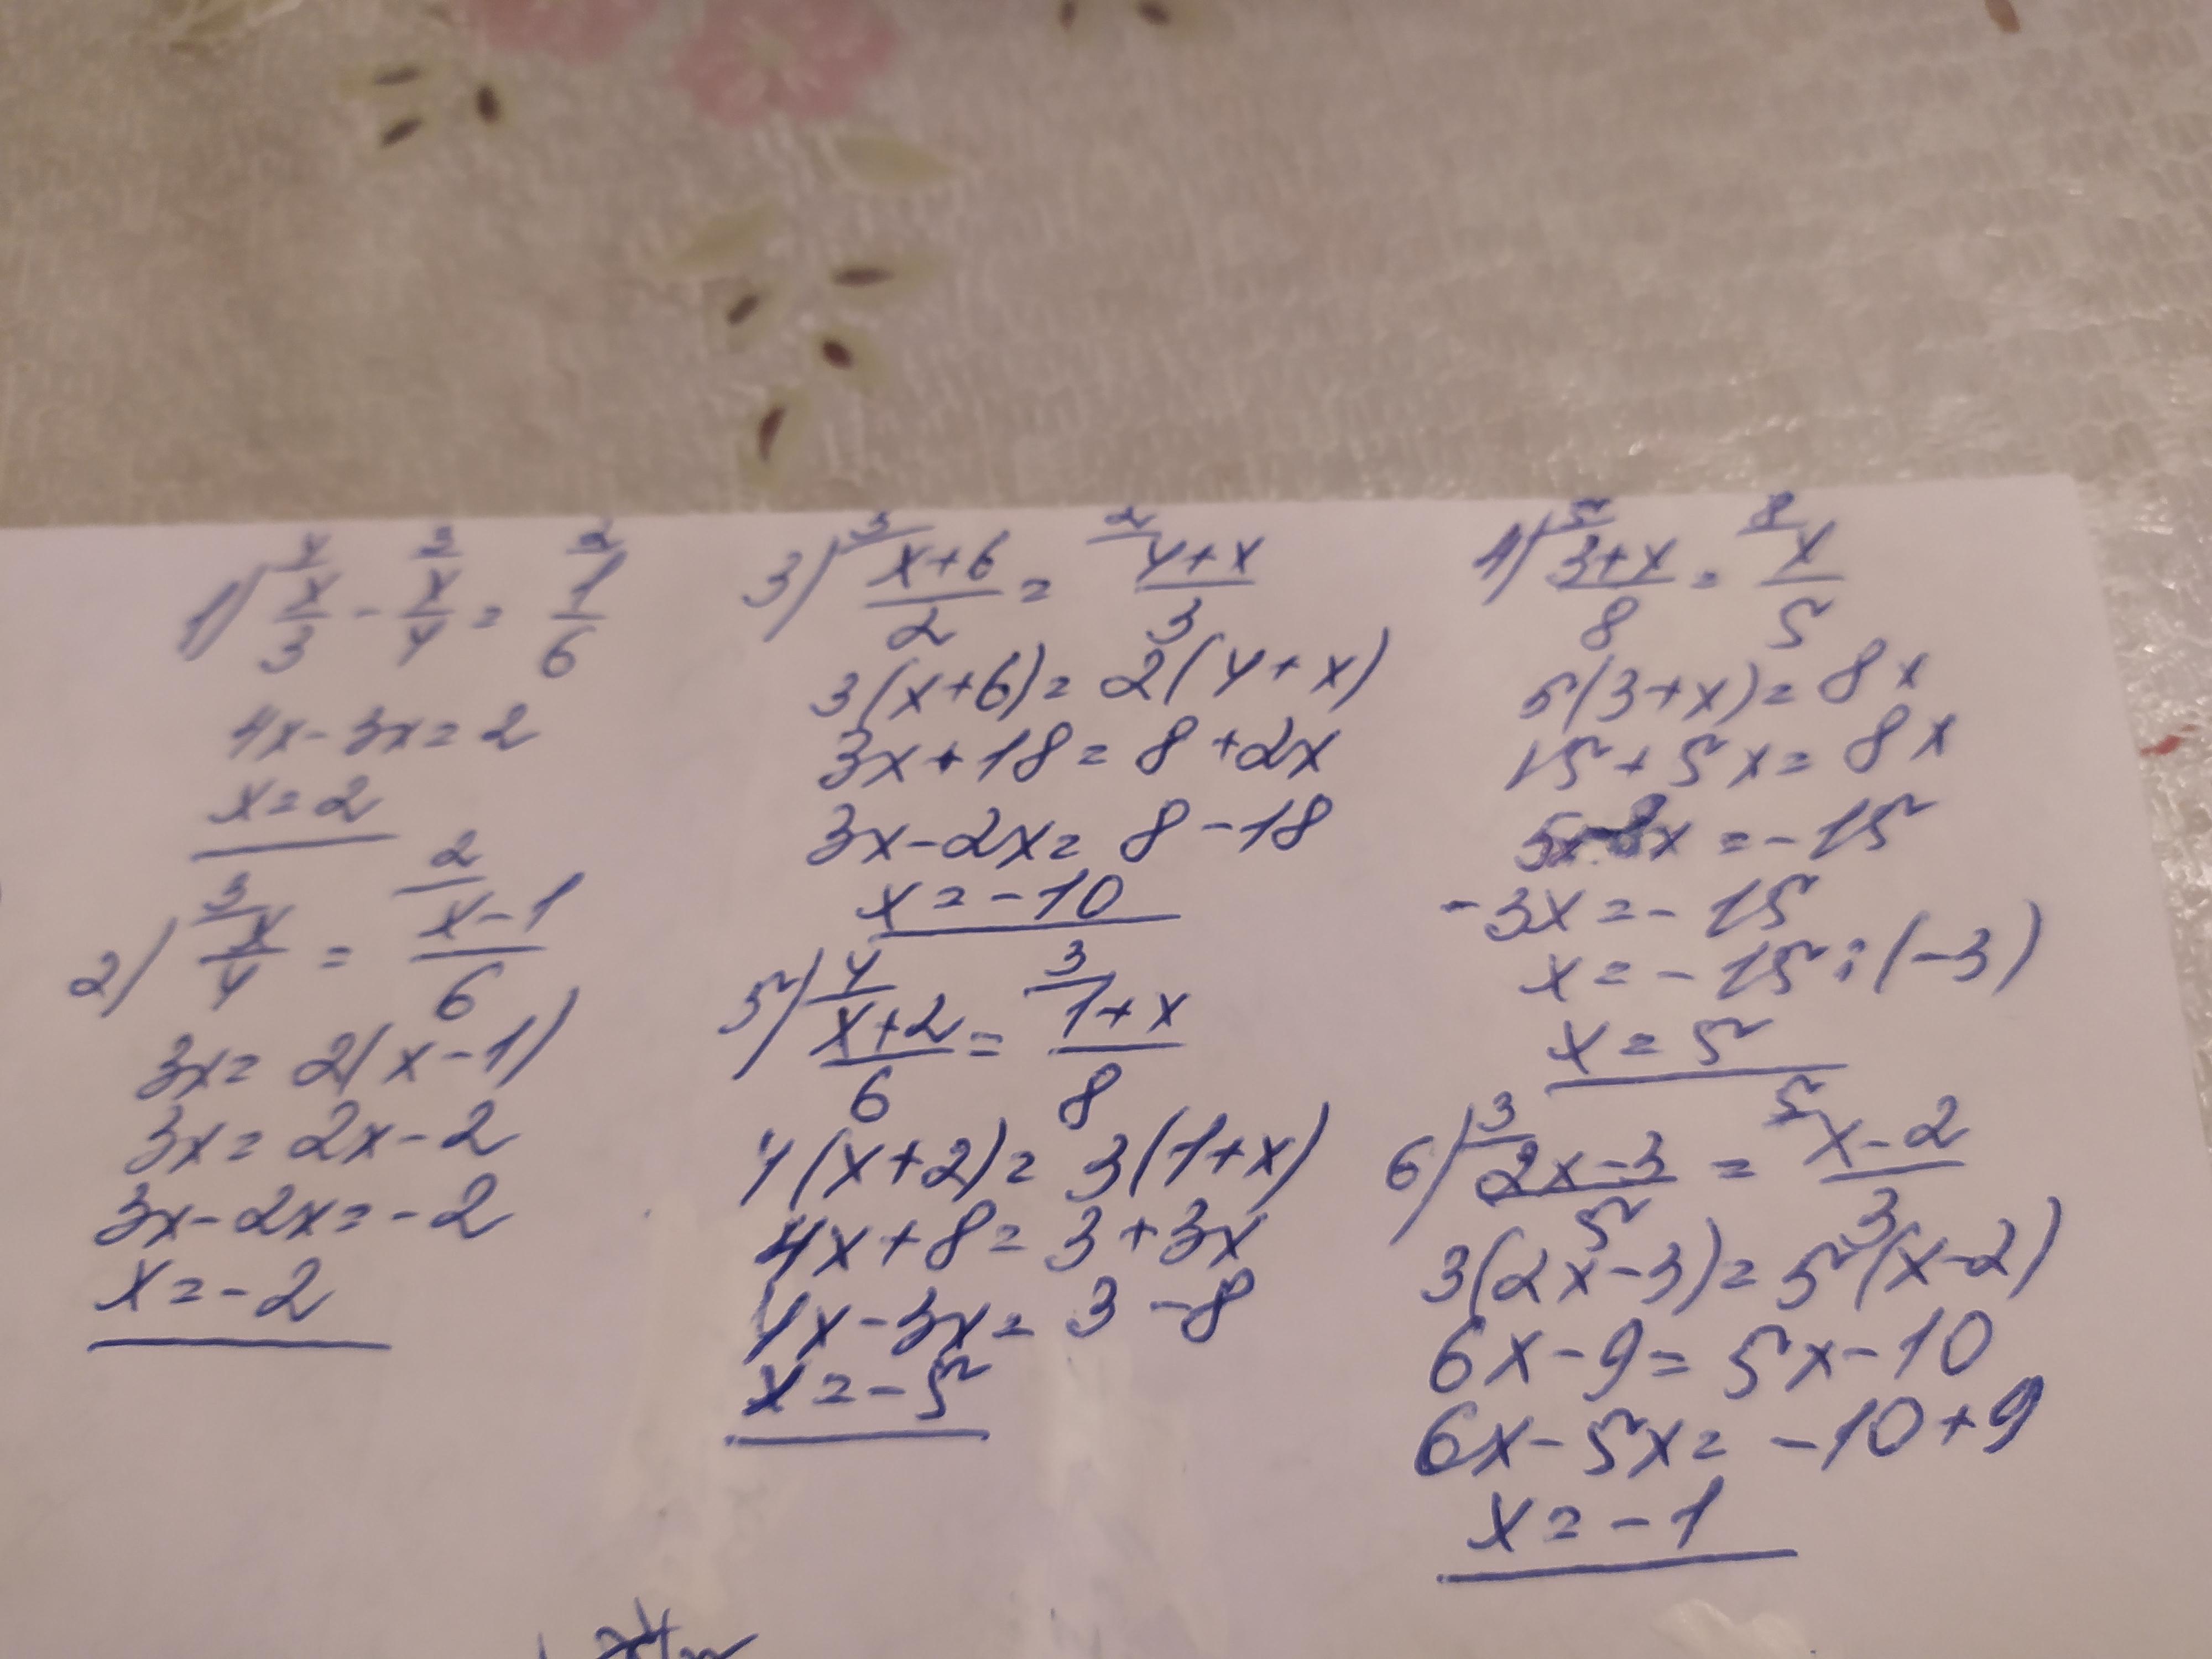 1) 4/ x/3 - 3/ x/4 = 2/ 1/6
4x-3x=2
x=2
2) 3/ x/4 = 2/ x-1/6
3x=2(x-1)
3x=2x-2
3x-2x=-2
x=-2
3) 3/ x+6/2 = 2/ 4+x/3
3(x+6)=2(4+x)
3x+18=8+2x
3x-2x=8-18
x=-10
5) 4/ x+2/6 = 3/ 1+x/8
4(x+2)=3(1+x)
4x+8=3+3x
4x-3x=3-8
x=-5
4) 5/ 3+x/8 = 8/ x/5
5(3+x)=8x
15+5x=8x
5x-8x=-15
-3x=-15
x=-15:(-3)
x=5
6) 3/ 2x-3/5 = 5/ x-2/3
3(2x-3)=5(x-2)
6x-9=5x-10
6x-5x=-10+9
x=-1